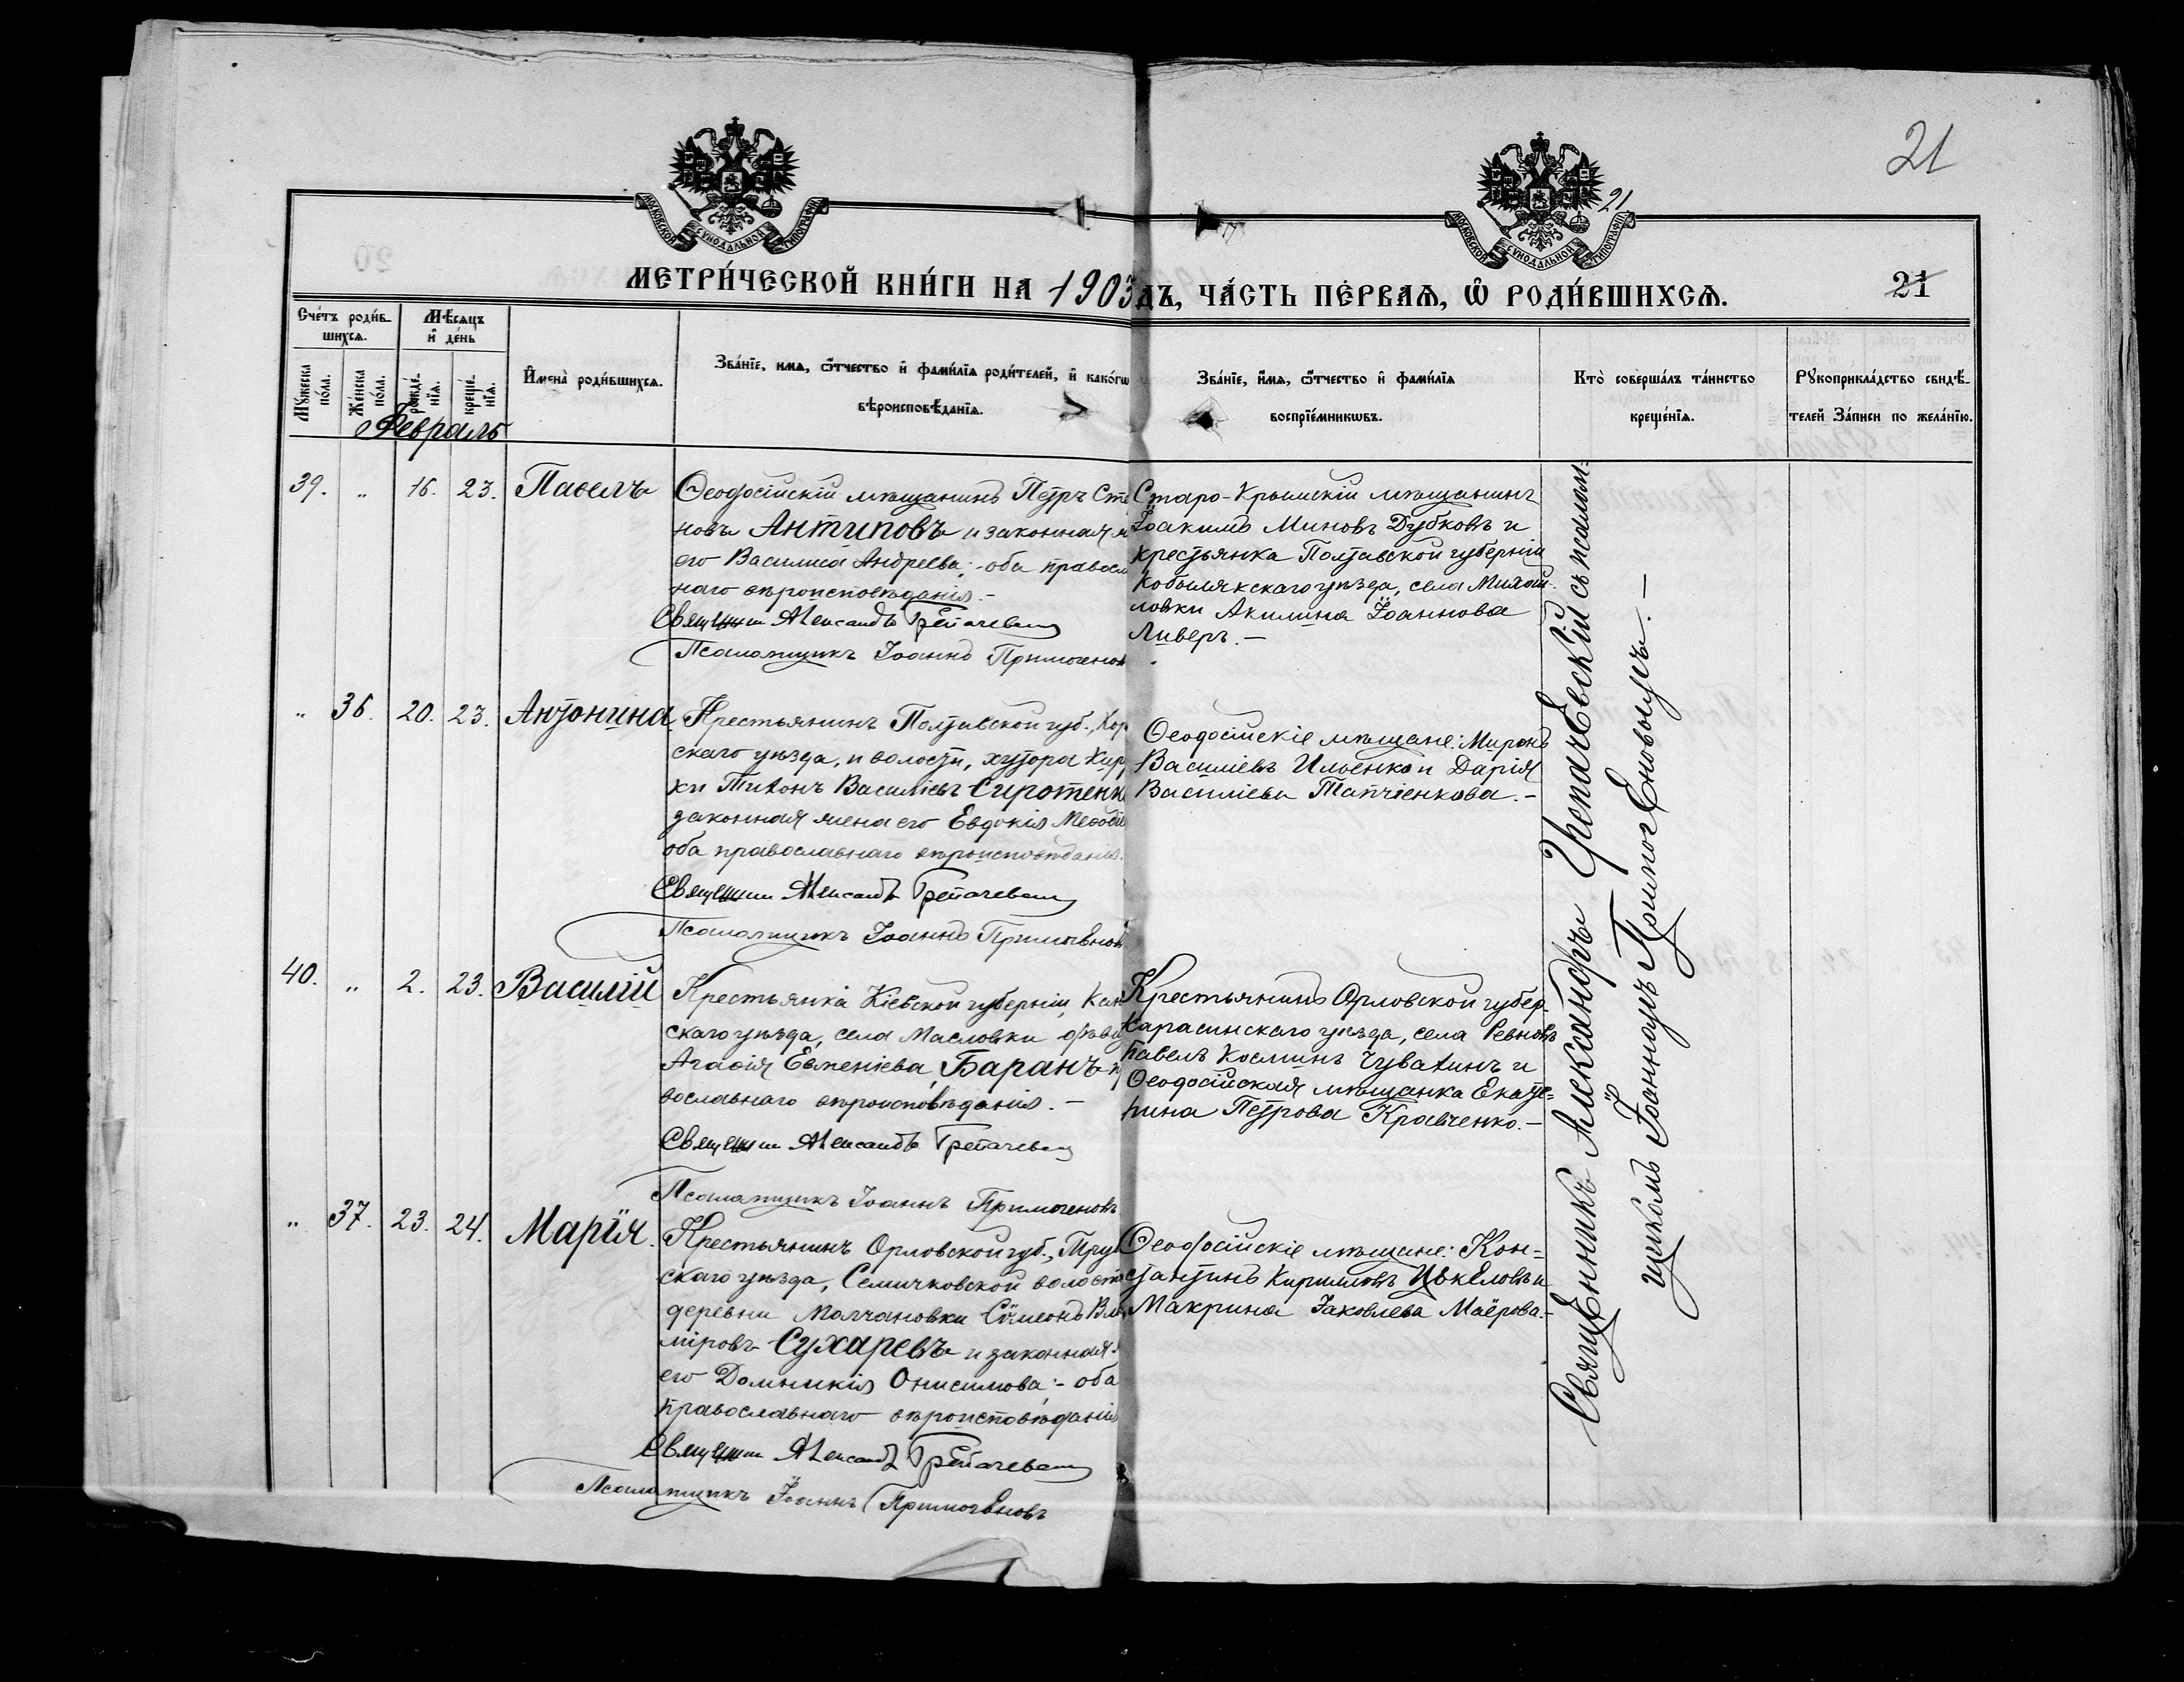 21
МОСКОВСКОЙ СѴНОДАЛЬНОЙ ТИПОГРАФІИ
МОСКОВСКОЙ СѴНОДАЛЬНОЙ ТИПОГРАФІИ
21
МЕТРИ́ЧЕСКОЙ КНИ́ГИ НА 1903 ДЪ, ЧА́СТЬ ПЕ́РВАЯ, Ѡ РОДИ́ВШИХСЯ.
21
Сче́тъ роди́в-
шихся.
Мѣ́сяцъ
и де́нь
Му́жеска
по́ла.
Же́нска
по́ла.
рожде́-
нїя.
креще́-
нїя.
Имена̀ роди́вшихся.
Зва́нїе, имя, ѻ҆́тчество и фами́лїя роди́телей, и како́гѡ
вѣроисповѣ́данїя.
Зва́нїе, и́мя, ѻ҆́тчество и фами́лїя
воспрїе́мникѡвъ.
Кто̀ соверша́лъ та́инство
креще́нїя.
Рукоприкла́дство свидѣ́-
телей За́писи по жела́нїю.
Февраль
39. „ 16. 23. Павелъ
Ѳеодосійскій мѣщанинъ Петръ Сте
новъ Антиповъ и законная ж
его Василиса Андреева; - оба правосл
наго вѣроисповѣданія. -
Священник Александръ Трепачевскій
Псаломщикъ Іоаннъ Примогенов
Старо-Крымскій мѣщанинъ
Іоакимъ Миновъ Дубковъ и
крестьянка Полтавской губерніи
Кобылякскаго уѣзда, села Михай-
ловки Акилина Іоаннова
Ливеръ. -
„ 36. 20. 23. Антонина
Крестьянинъ Полтавской губ., Кор
скаго уѣзда, и волости, хутора Кир
хи Тихонъ Василіевъ Сиротенк
законная жена его Евдокія Меѳоді
оба православнаго вѣроисповѣданія.
Священник Александръ Трепачевскій
Псаломщикъ Іоаннъ Примогенов
Ѳеодосійскіе мѣщане: Миронъ
Василіевъ Ильенко и Дарія
Василіева Тапчіенкова. -
40. „ 2. 23. Василій
Крестьянка Кіевской губерніи, Кан
скаго уѣзда, села Масловки дѣви
Агаѳія Евменіева Баранъ п
вославнаго вѣроисповѣданія. -
Священник Александръ Трепачевскій
Псаломщикъ Іоаннъ Примогеновъ
Крестьянинъ Орловской губер.
Карасинскаго уѣзда, села Ревновъ
Павелъ Косминъ Чувахинъ и
Ѳеодосійская мѣщанка Екате-
рина Петрова Кравченко. -
„ 37. 23. 24. Марія.
Крестьянинъ Орловской губ., Тру
скаго уѣзда, Семичковской волости
деревни Молчановки Сѵмеонъ Вла
міровъ Сухаревъ и законная ж
его Домникія Онисимова; - оба
православнаго вѣроисповѣданія
Священник Александръ Трепачевскій
Псаломщикъ Іоаннъ Примогеновъ
Ѳеодосійскіе мѣщане: Кон-
стантинъ Кирилловъ и
Макрина Іаковлева Маёрова. -
Священникъ Александръ Трепачевскій съ псалом-
щикомъ Іоанномъ Примогеновымъ. -